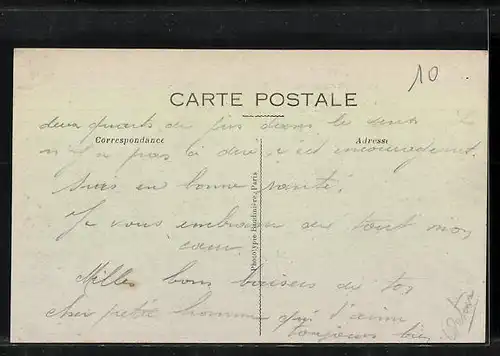 10
CARTE POSTALE
deux quarts de plus dans le
Correspondance
Adresse
n'y a pas à dire c'est encourageant.
Suis en bonne santé.
Je vous embrasse de tout mon
cœur
Milles bons baisers de ton
cher petit homme qui t'aime
toujours bien
Phototypie Baudinière, Paris